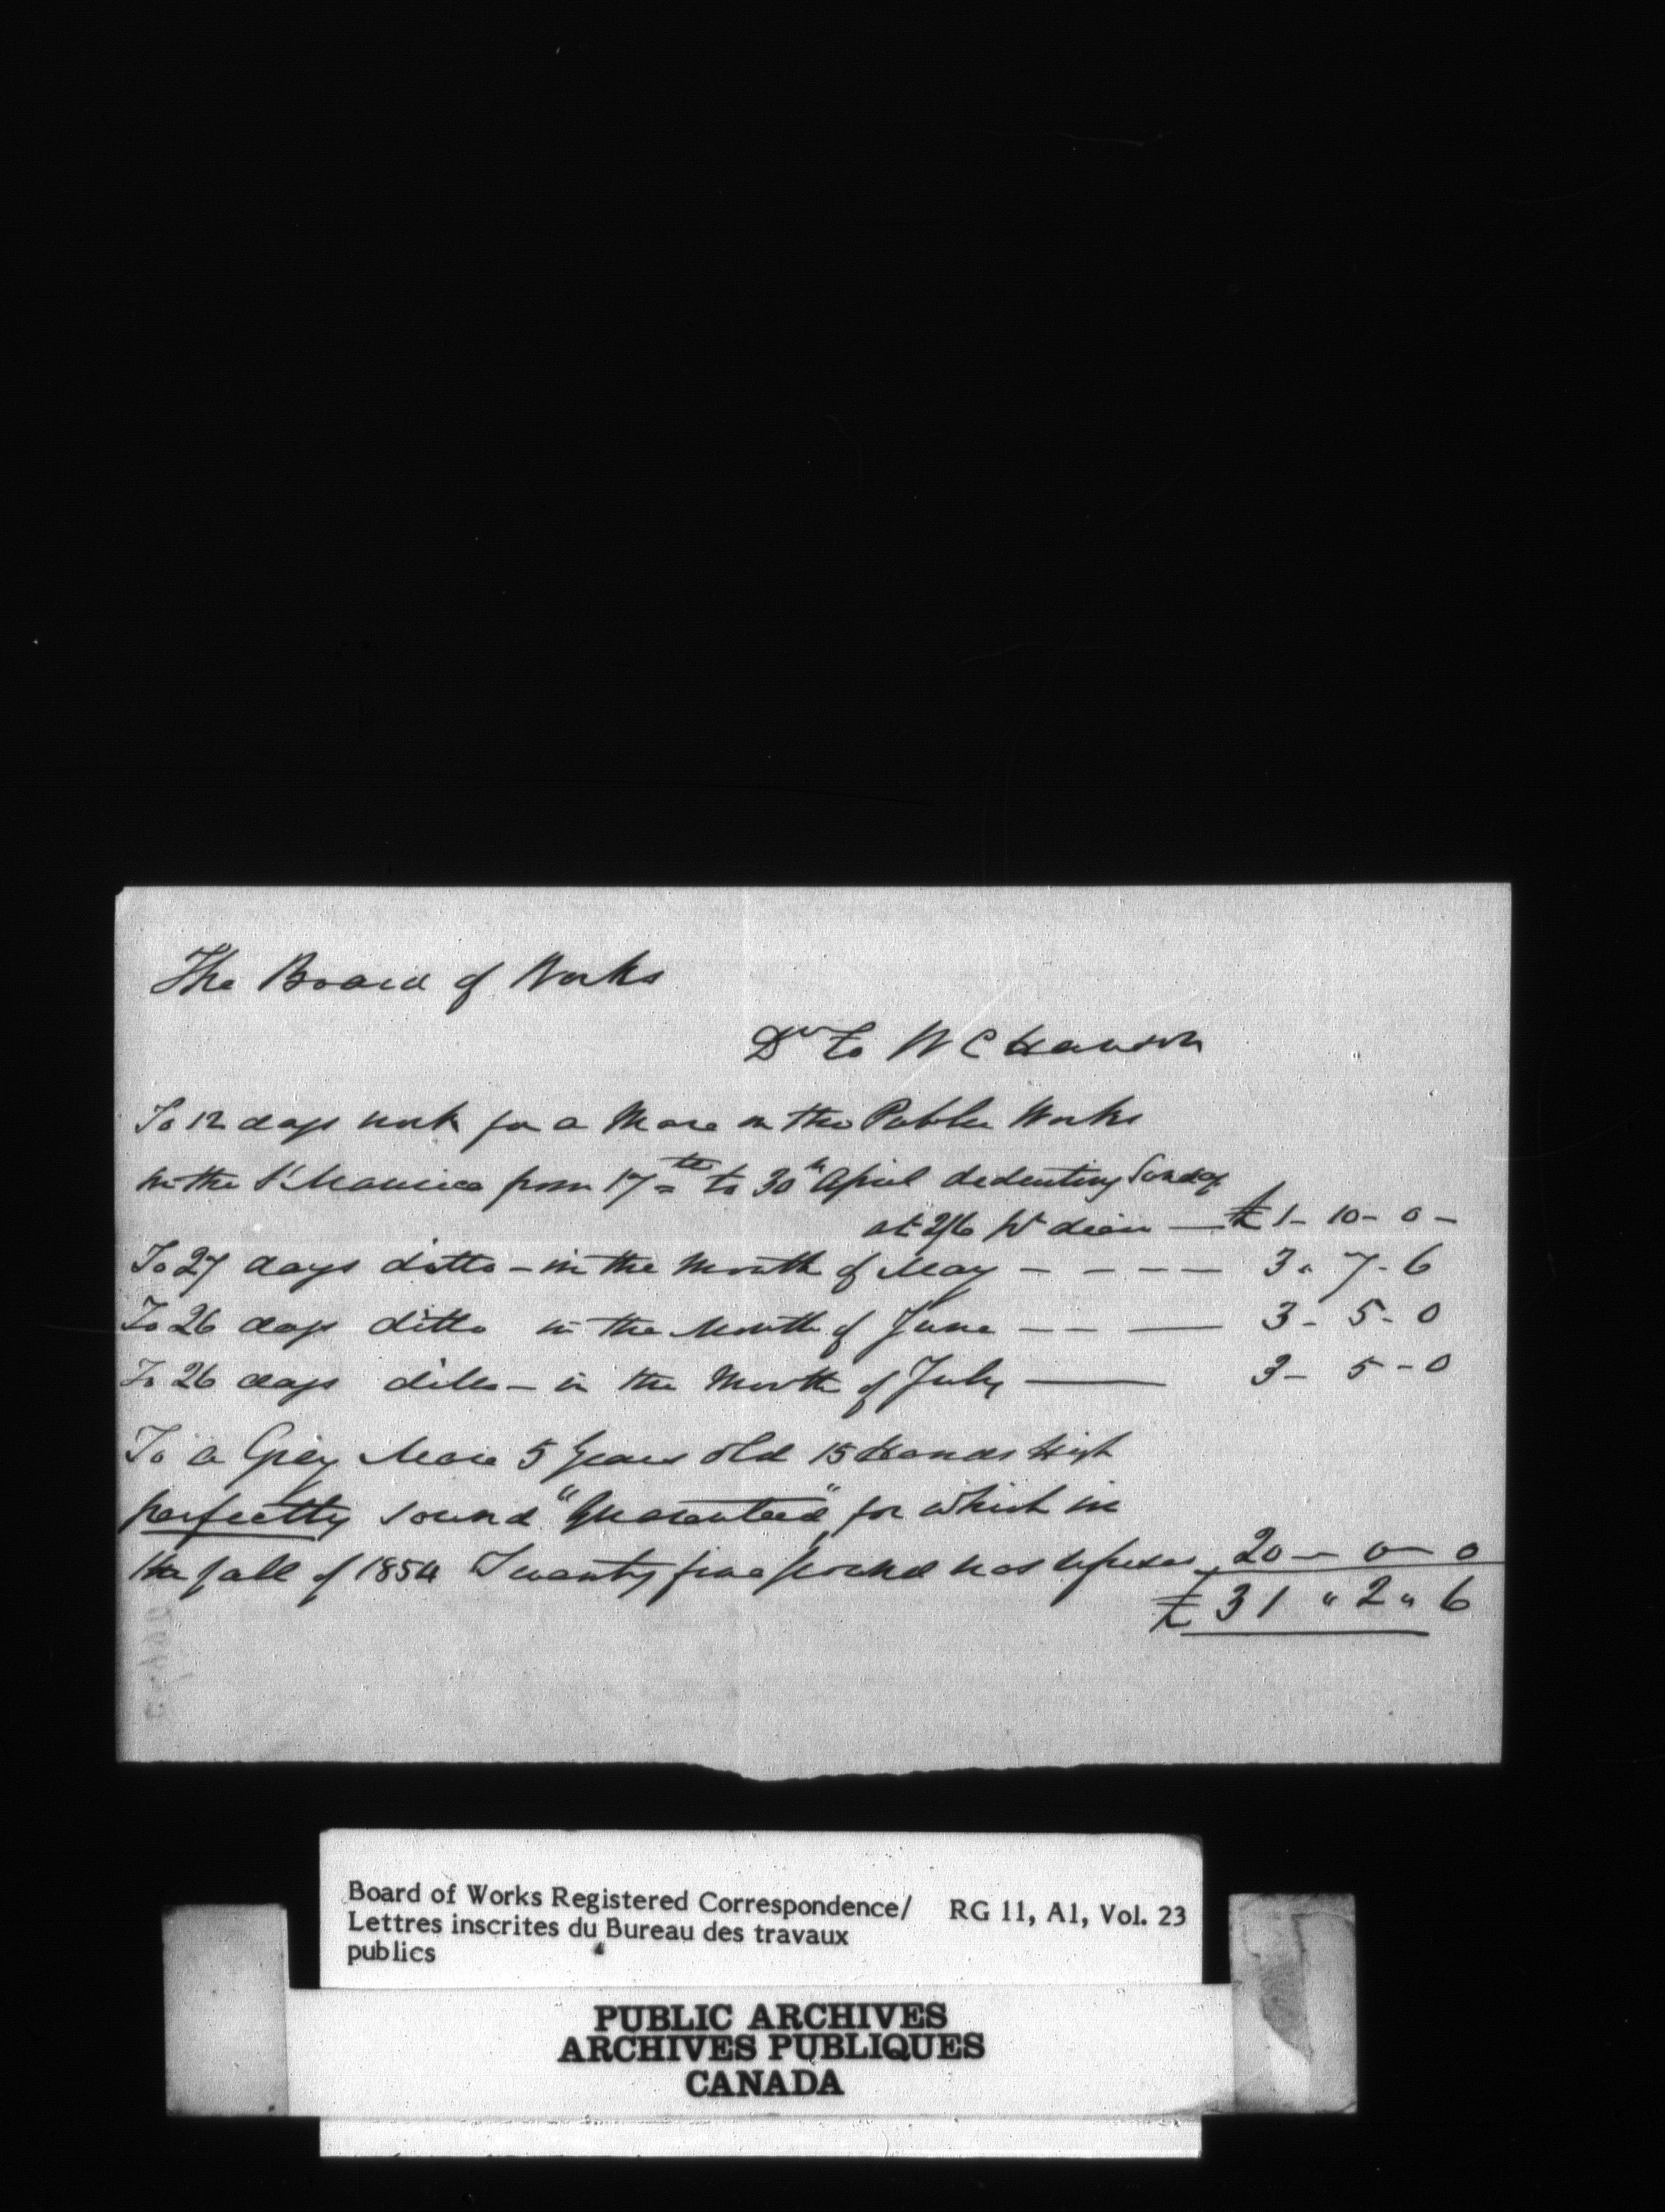 The Board of Works
Dr To W C Hanson
To 12 days work for a Mare on the Public Works
in the St Maurice from 17th to 30th April deducting Sunday
at 2/6 pr diem — £ 1 - 10 - 0 -
To 27 days ditto - in the Month of May - - - - 3 " 7 - 6
To 26 days ditto in the Month of June - - — 3 - 5 - 0
To 26 days ditto - in the Month of July — 3 - 5 - 0
To a Grey Mare 5 Years old 15 Hands High
perfectly sound "Guaranteed" for which in
the fall of 1854 Twenty five pound was refused 20 - 0 - 0
£ 31 " 2 " 6
Board of Works Registered Correspondence/ RG 11, A1, Vol. 23
Lettres inscrites du Bureau des travaux
publics
PUBLIC ARCHIVES
ARCHIVES PUBLIQUES
CANADA